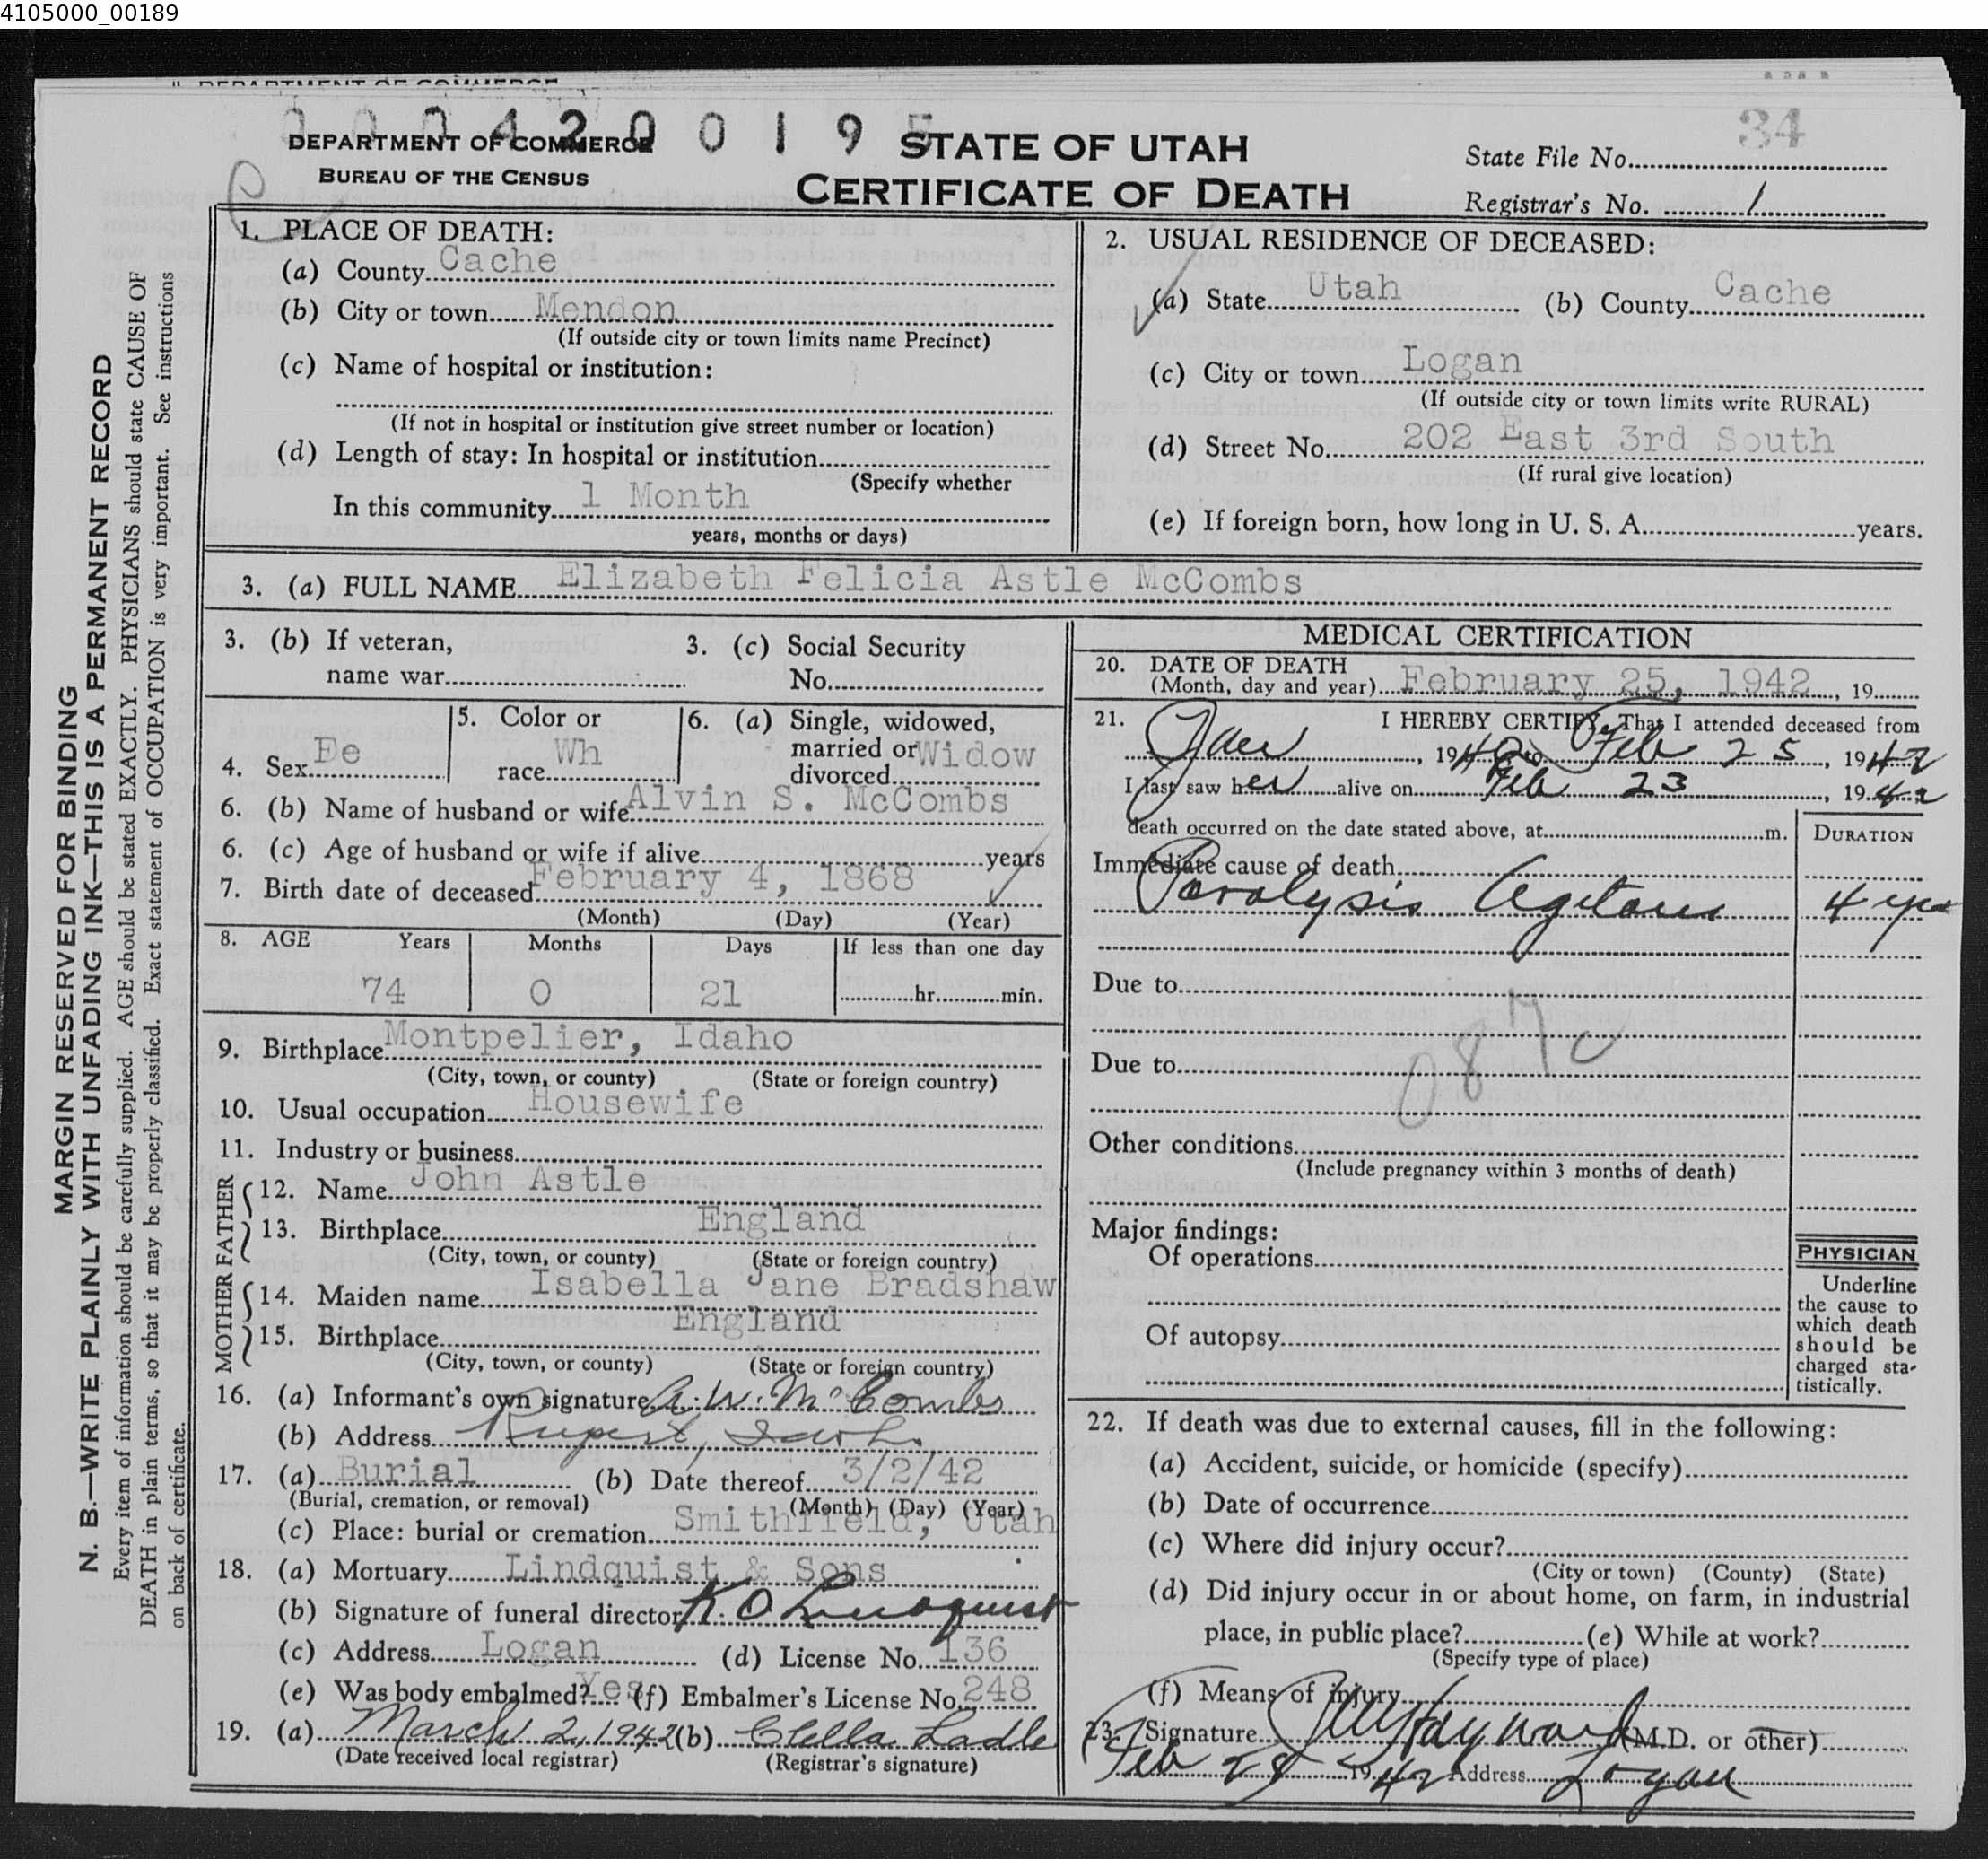 4105000_00189
DEPARTMENT OF COMMERCE
34
0004200195
DEPARTMENT OF COMMERCE
BUREAU OF THE CENSUS
STATE OF UTAH
CERTIFICATE OF DEATH
State File No.
Registrar's No. 1
MARGIN RESERVED FOR BINDING
N. B.—WRITE PLAINLY WITH UNFADING INK—THIS IS A PERMANENT RECORD
Every item of information should be carefully supplied. AGE should be stated EXACTLY. PHYSICIANS should state CAUSE OF
DEATH in plain terms, so that it may be properly classified. Exact statement of OCCUPATION is very important. See instructions
on back of certificate.
1. PLACE OF DEATH:
(a) County Cache
(b) City or town Mendon
(If outside city or town limits name Precinct)
(c) Name of hospital or institution:
(If not in hospital or institution give street number or location)
(d) Length of stay: In hospital or institution
(Specify whether
In this community 1 Month
years, months or days)
2. USUAL RESIDENCE OF DECEASED:
(a) State Utah (b) County Cache
(c) City or town Logan
(If outside city or town limits write RURAL)
(d) Street No. 202 East 3rd South
(If rural give location)
(e) If foreign born, how long in U. S. A. years.
3. (a) FULL NAME Elizabeth Felicia Astle McCombs
3. (b) If veteran,
name war
3. (c) Social Security
No.
4. Sex Fe
5. Color or
race Wh
6. (a) Single, widowed,
married or
divorced Widow
6. (b) Name of husband or wife Alvin S. McCombs
6. (c) Age of husband or wife if alive years
7. Birth date of deceased February 4, 1868
(Month) (Day) (Year)
8. AGE Years Months Days If less than one day
74 0 21 hr. min.
9. Birthplace Montpelier, Idaho
(City, town, or county) (State or foreign country)
10. Usual occupation Housewife
11. Industry or business
FATHER
12. Name John Astle
13. Birthplace England
(City, town, or county) (State or foreign country)
MOTHER
14. Maiden name Isabella Jane Bradshaw
15. Birthplace England
(City, town, or county) (State or foreign country)
16. (a) Informant's own signature A. W. McCombs
(b) Address Rupert, Idaho
17. (a) Burial (b) Date thereof 3/2/42
(Burial, cremation, or removal) (Month) (Day) (Year)
(c) Place: burial or cremation Smithfield, Utah
18. (a) Mortuary Lindquist & Sons
(b) Signature of funeral director K. O. Lindquist
(c) Address Logan (d) License No. 136
(e) Was body embalmed? Yes (f) Embalmer's License No. 248
19. (a) March 2, 1942 (b) Clella Ladle
(Date received local registrar) (Registrar's signature)
MEDICAL CERTIFICATION
20. DATE OF DEATH
(Month, day and year) February 25, 1942, 19
21. I HEREBY CERTIFY, That I attended deceased from
Jan, 1940 to Feb 25, 1942
I last saw her alive on Feb 23, 1942
death occurred on the date stated above, at m.
DURATION
Immediate cause of death
Paralysis Agitans 4 yrs
Due to
087c
Due to
Other conditions
(Include pregnancy within 3 months of death)
Major findings:
Of operations
Of autopsy
PHYSICIAN
Underline
the cause to
which death
should be
charged sta-
tistically.
22. If death was due to external causes, fill in the following:
(a) Accident, suicide, or homicide (specify)
(b) Date of occurrence
(c) Where did injury occur?
(City or town) (County) (State)
(d) Did injury occur in or about home, on farm, in industrial
place, in public place? (e) While at work?
(Specify type of place)
(f) Means of injury
23. Signature Hayward (M.D. or other)
Feb 28 1942 Address Logan